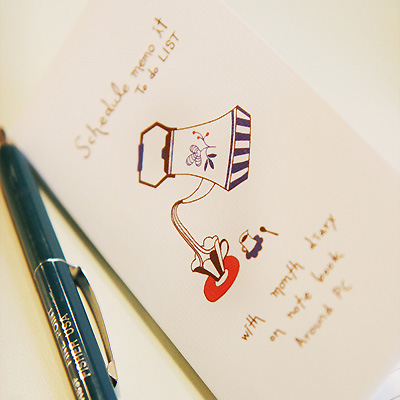 Schedule memo it
To do LIST
with month diary
on note book
Around PC
FISHER USA